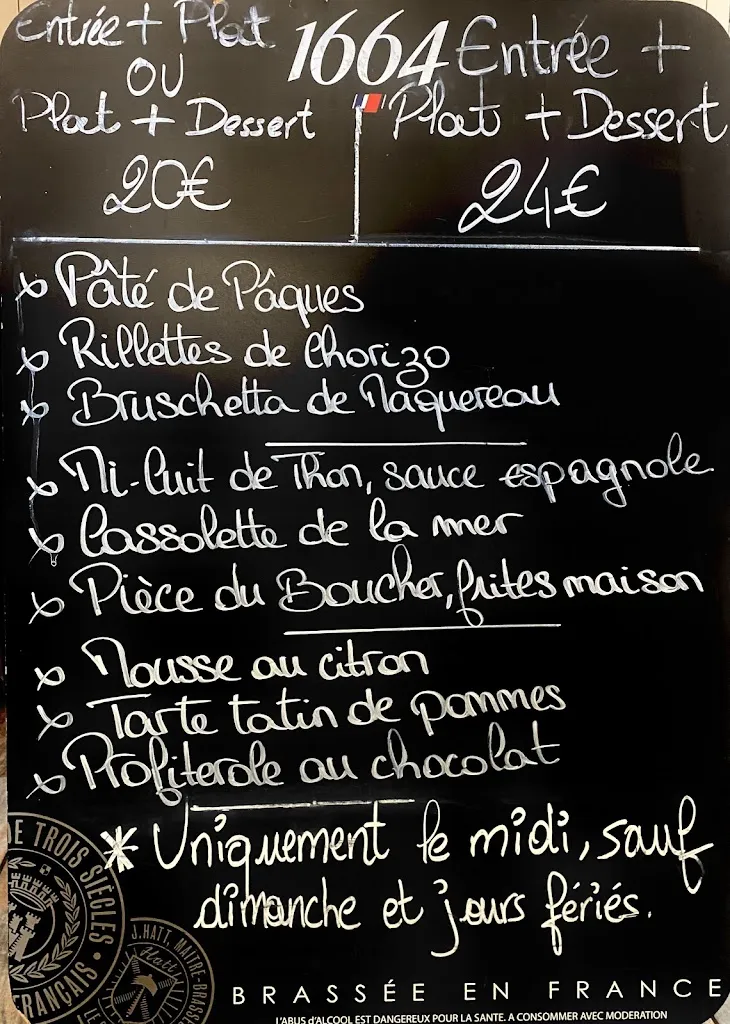 Entrée + Plat
OU
Plat + Dessert
20€
1664
Entrée +
Plat + Dessert
24€
x Pâté de Pâques
x Rillettes de Chorizo
x Bruschetta de Maquereau
x Mi-Cuit de Thon, sauce espagnole
x Cassolette de la mer
x Pièce du Boucher, frites maison
x Mousse au citron
x Tarte tatin de pommes
x Profiterole au chocolat
* Uniquement le midi, sauf
dimanche et jours fériés.
DE TROIS SIECLES
FRANÇAIS
J.HATT, MAITRE-BRASSE
Hatt
BRASSÉE EN FRANCE
L'ABUS d'ALCOOL EST DANGEREUX POUR LA SANTE. A CONSOMMER AVEC MODERATION